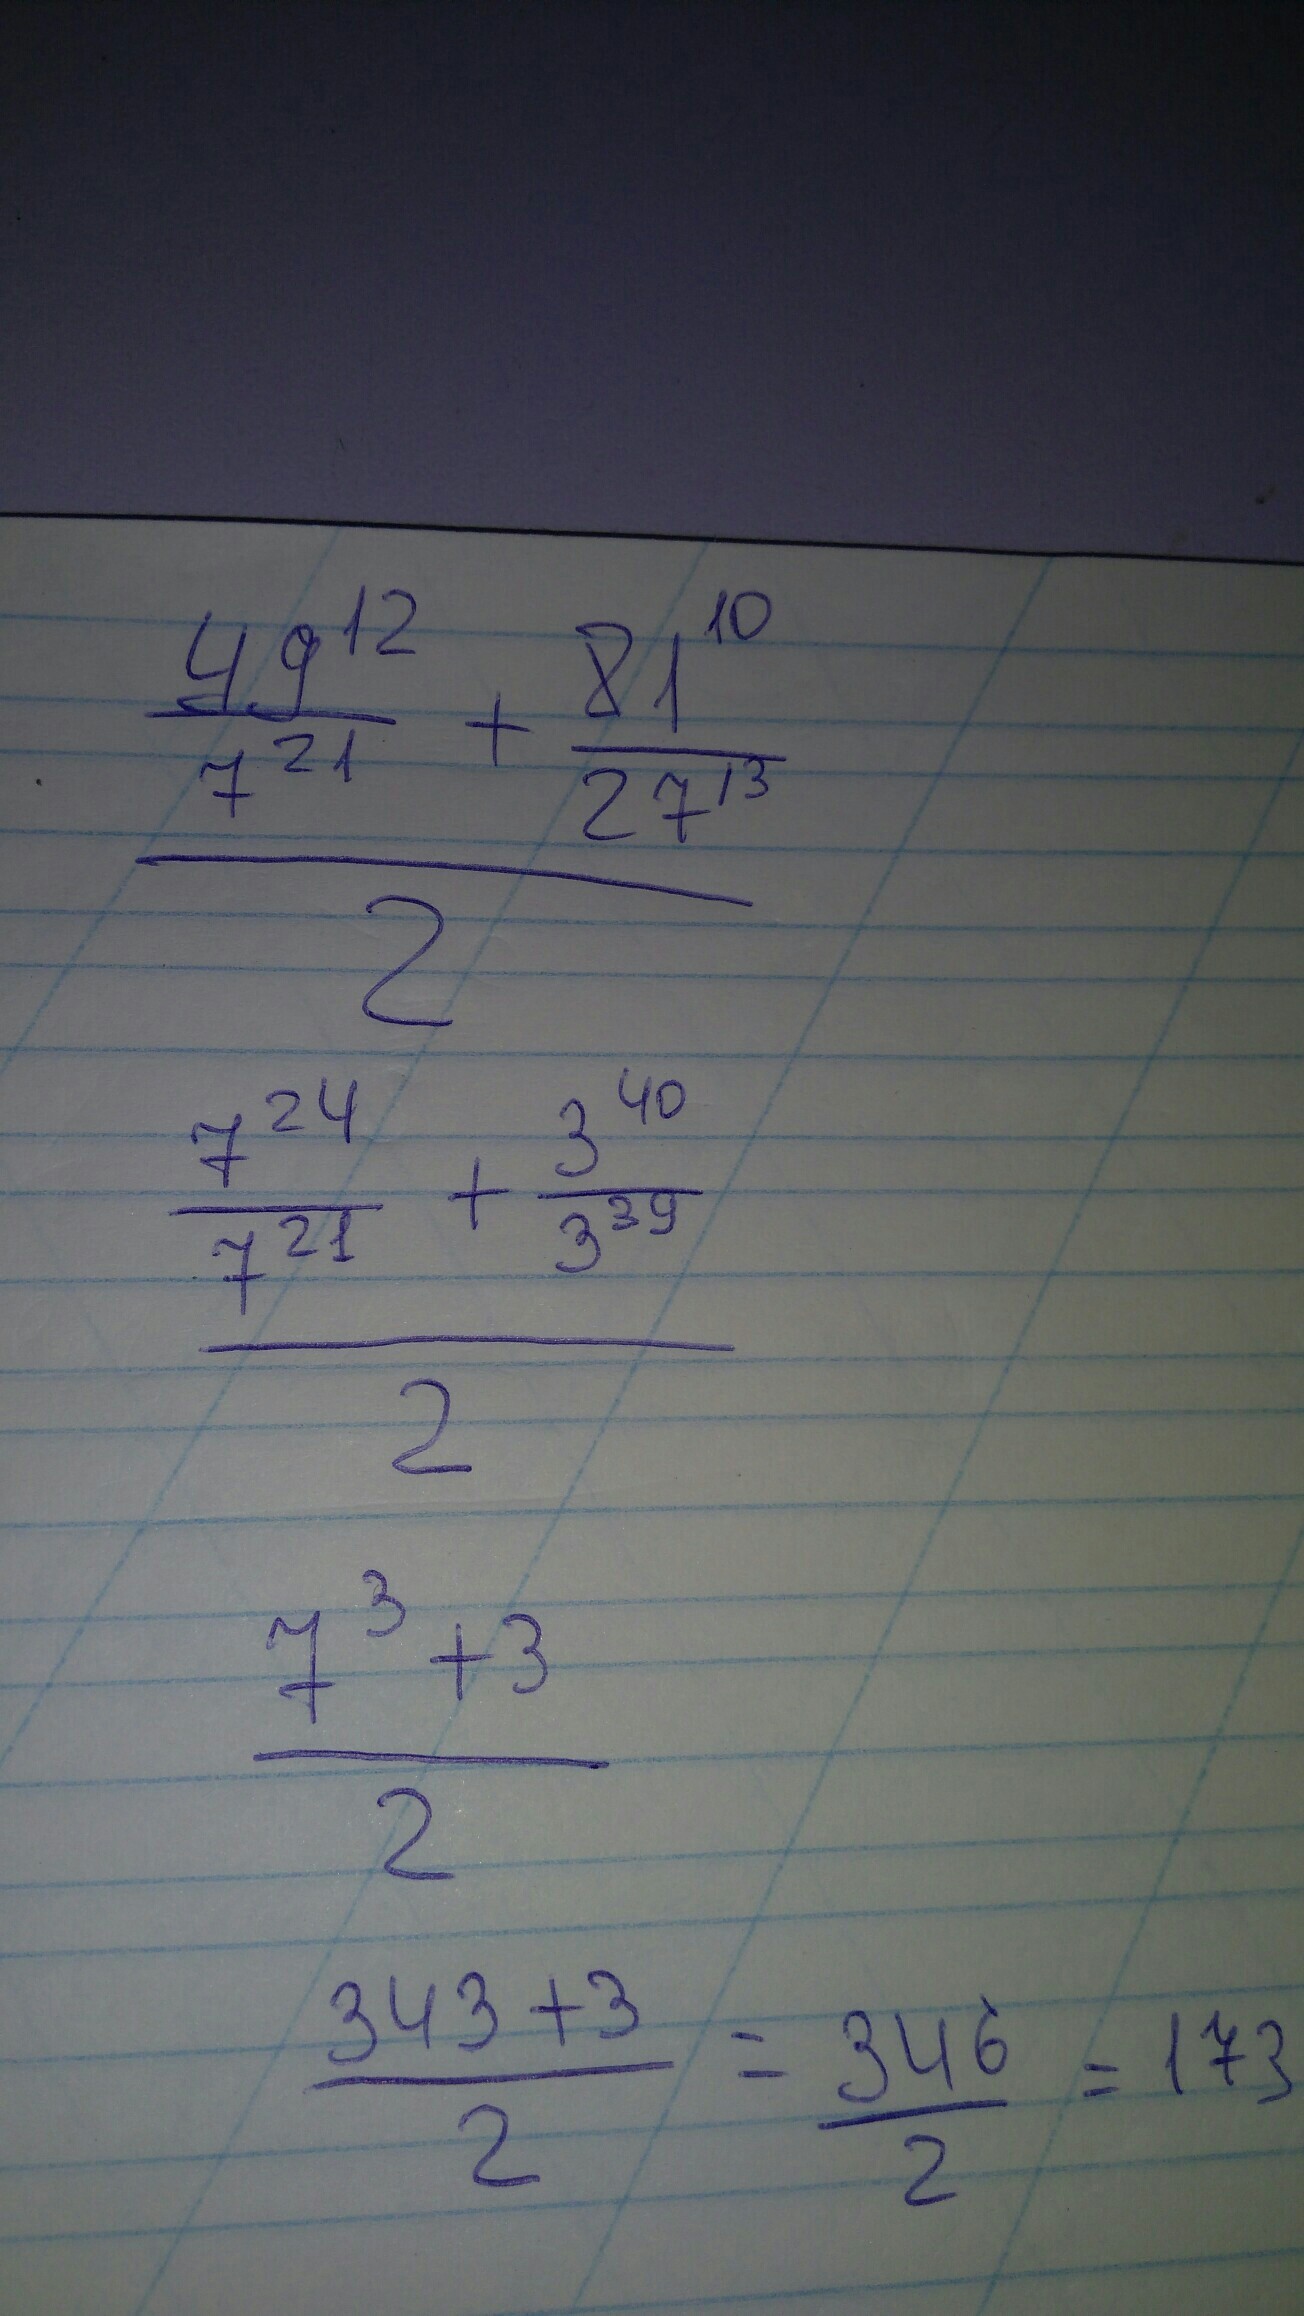 49^12 / 7^21 + 81^10 / 27^13
2
7^24 / 7^21 + 3^40 / 3^39
2
7^3 + 3
2
343 + 3 / 2 = 346 / 2 = 173